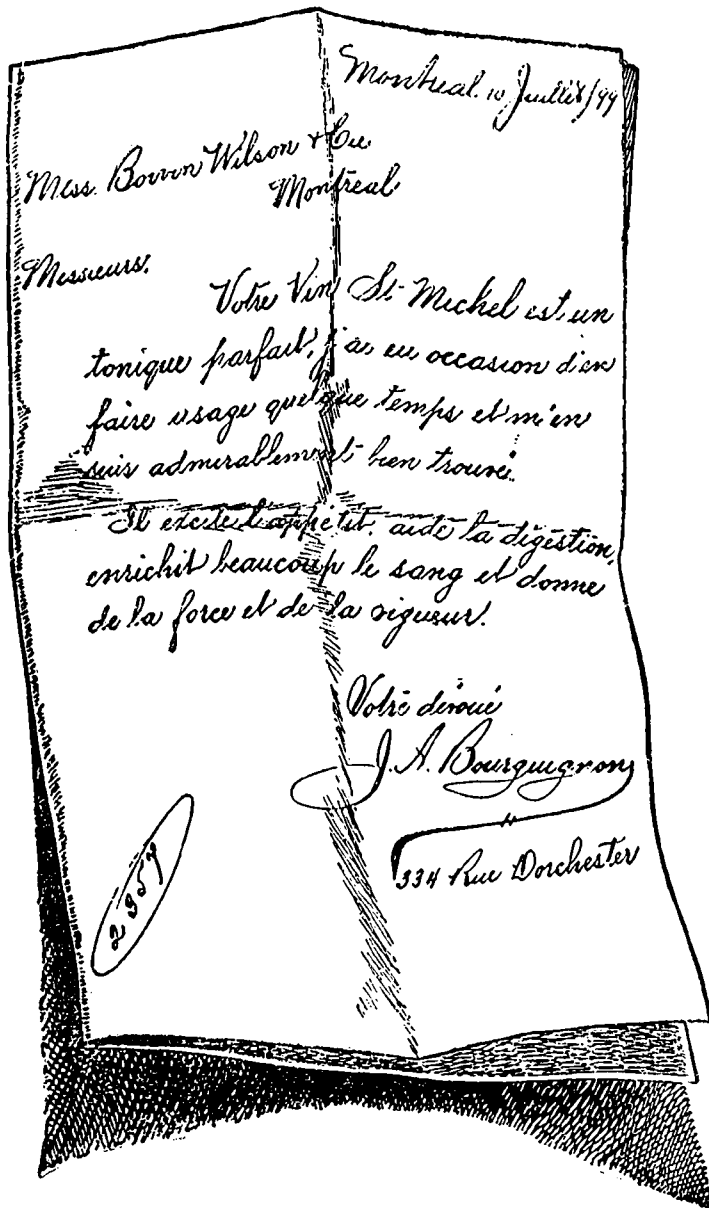 Montreal. 10 Juillet/99
Mess. Boivin Wilson & Cie
Montreal
Messieurs.
Votre Vin St-Michel est un
tonique parfait, j'ai eu occasion d'en
faire usage quelque temps et m'en
suis admirablement bien trouvé.
Il excite l'appétit, aide la digestion,
enrichit beaucoup le sang et donne
de la force et de la vigueur.
Votre dévoué
J. A. Bourguignon
334 Rue Dorchester
2957